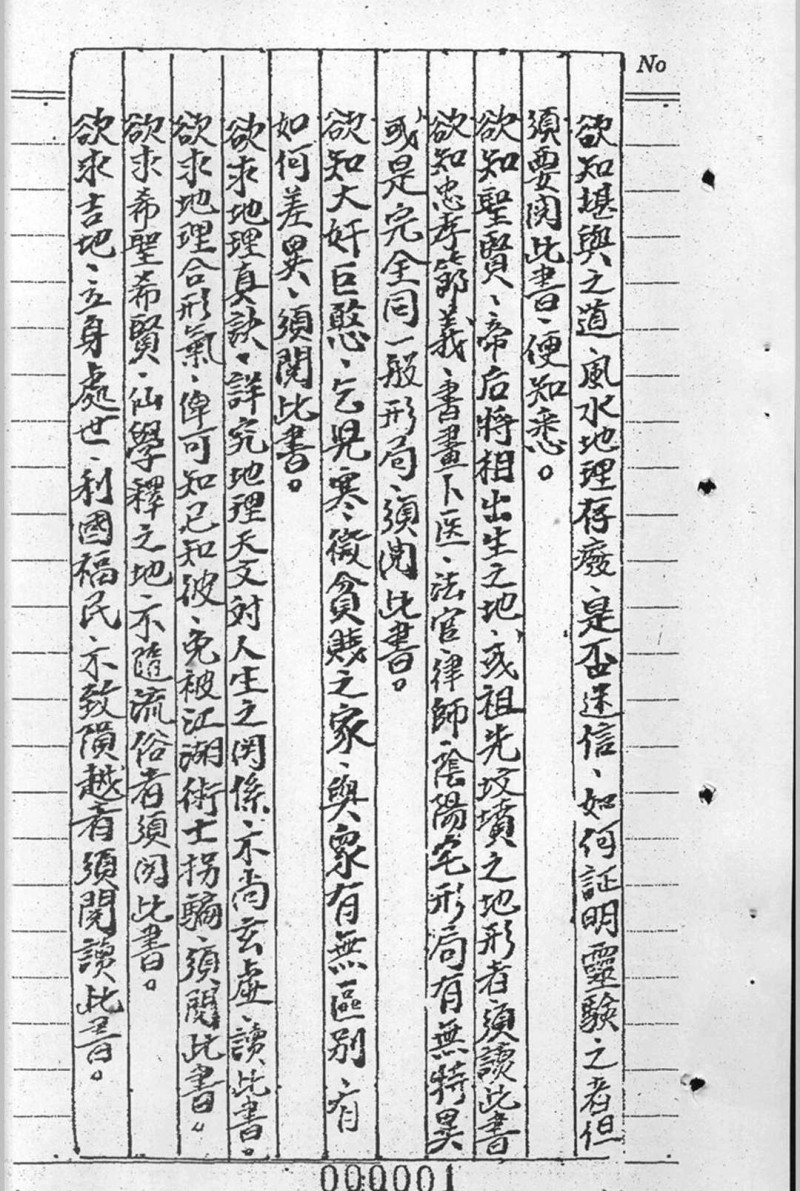 No
欲知堪輿之道、風水地理存廢、是否迷信、如何証明靈驗之者但
須要閱此書、便知悉。
欲知聖賢、帝后將相出生之地、或祖先坟墳之地形者須讀此書
欲知忠孝節義、書畫卜医、法官、律師、陰陽宅形局有無特異
或是完全同一般形局、須閱此書。
欲知大奸巨憨、乞児寒微貧賤之家、與衆有無區别、有
如何差異、須閱此書。
欲求地理真訣、詳究地理天文対人生之関係、不尚玄虛、讀此書。
欲求地理合形氣、俾可知己知彼、免被江湖術士拐騙、須閱此書。
欲求希聖希賢、仙學釋之地、不隨流俗者須閱此書。
欲求吉地、立身處世、利國福民、不致隕越者須閱讀此書。
000001